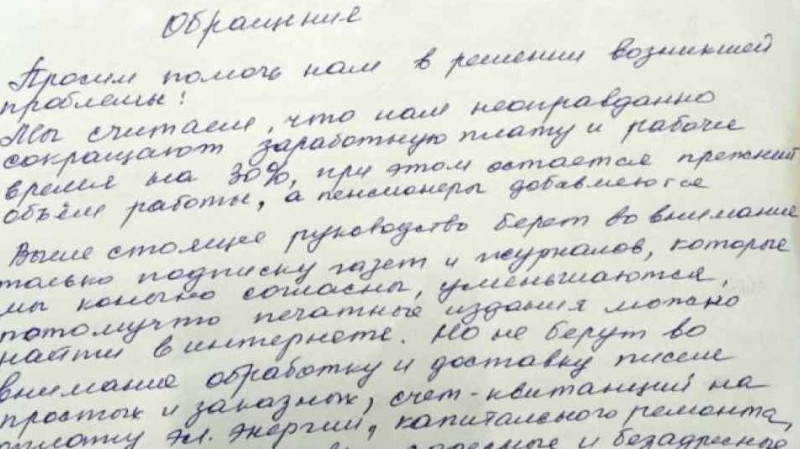 Обращение
Просим помочь нам в решении возникшей
проблемы!
Мы считаем, что нам неоправданно
сокращают заработную плату и рабочее
время на 30%, при этом остается прежний
объём работы, а пенсионеры добавляются
Выше стоящее руководство берет во внимание
только подписку газет и журналов, которые
мы согласны, уменьшаются,
потомучто печатные издания можно
найти в интернете. Но не берут во
внимание обработку и доставку писем
простых и заказных, счет-квитанций на
оплату эл. энергии, капитального ремонта,
и безадресные